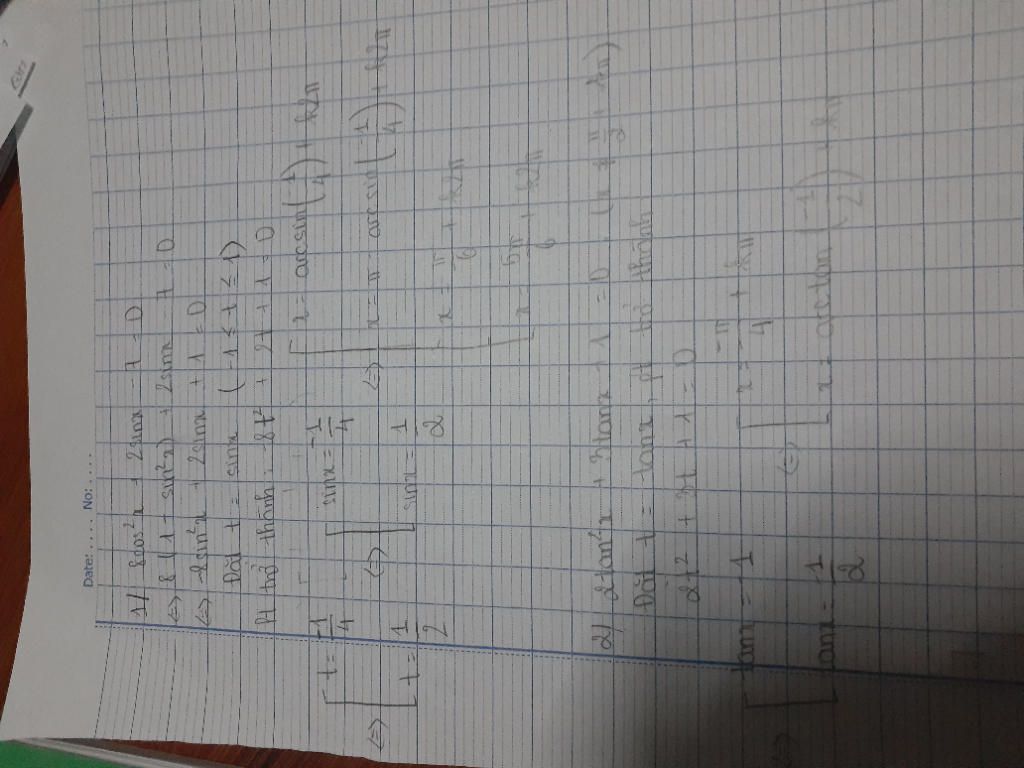 Date: ..... No: .....
1/ 8cos²x + 2sinx - 7 = 0
<=> 8(1 - sin²x) + 2sinx - 7 = 0
<=> -8sin²x + 2sinx + 1 = 0
Đặt t = sinx (-1 ≤ t ≤ 1)
Pt trở thành: -8t² + 2t + 1 = 0
<=> [ t = -1/4 <=> [ sinx = -1/4 <=> [ x = arcsin(-1/4) + k2π
x = π - arcsin(-1/4) + k2π
[ t = 1/2 [ sinx = 1/2 x = π/6 + k2π
x = 5π/6 + k2π
2/ 2tan²x + 3tanx + 1 = 0 (x ≠ π/2 + kπ)
Đặt t = tanx, pt trở thành
2t² + 3t + 1 = 0
<=> [ tanx = -1 <=> [ x = -π/4 + kπ
[ tanx = -1/2 [ x = arctan(-1/2) + kπ